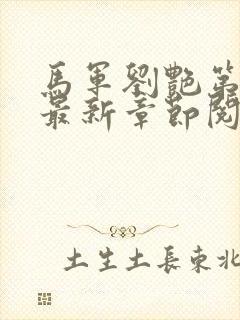 馬軍劉艷第
最新章節閱
土生土長東北